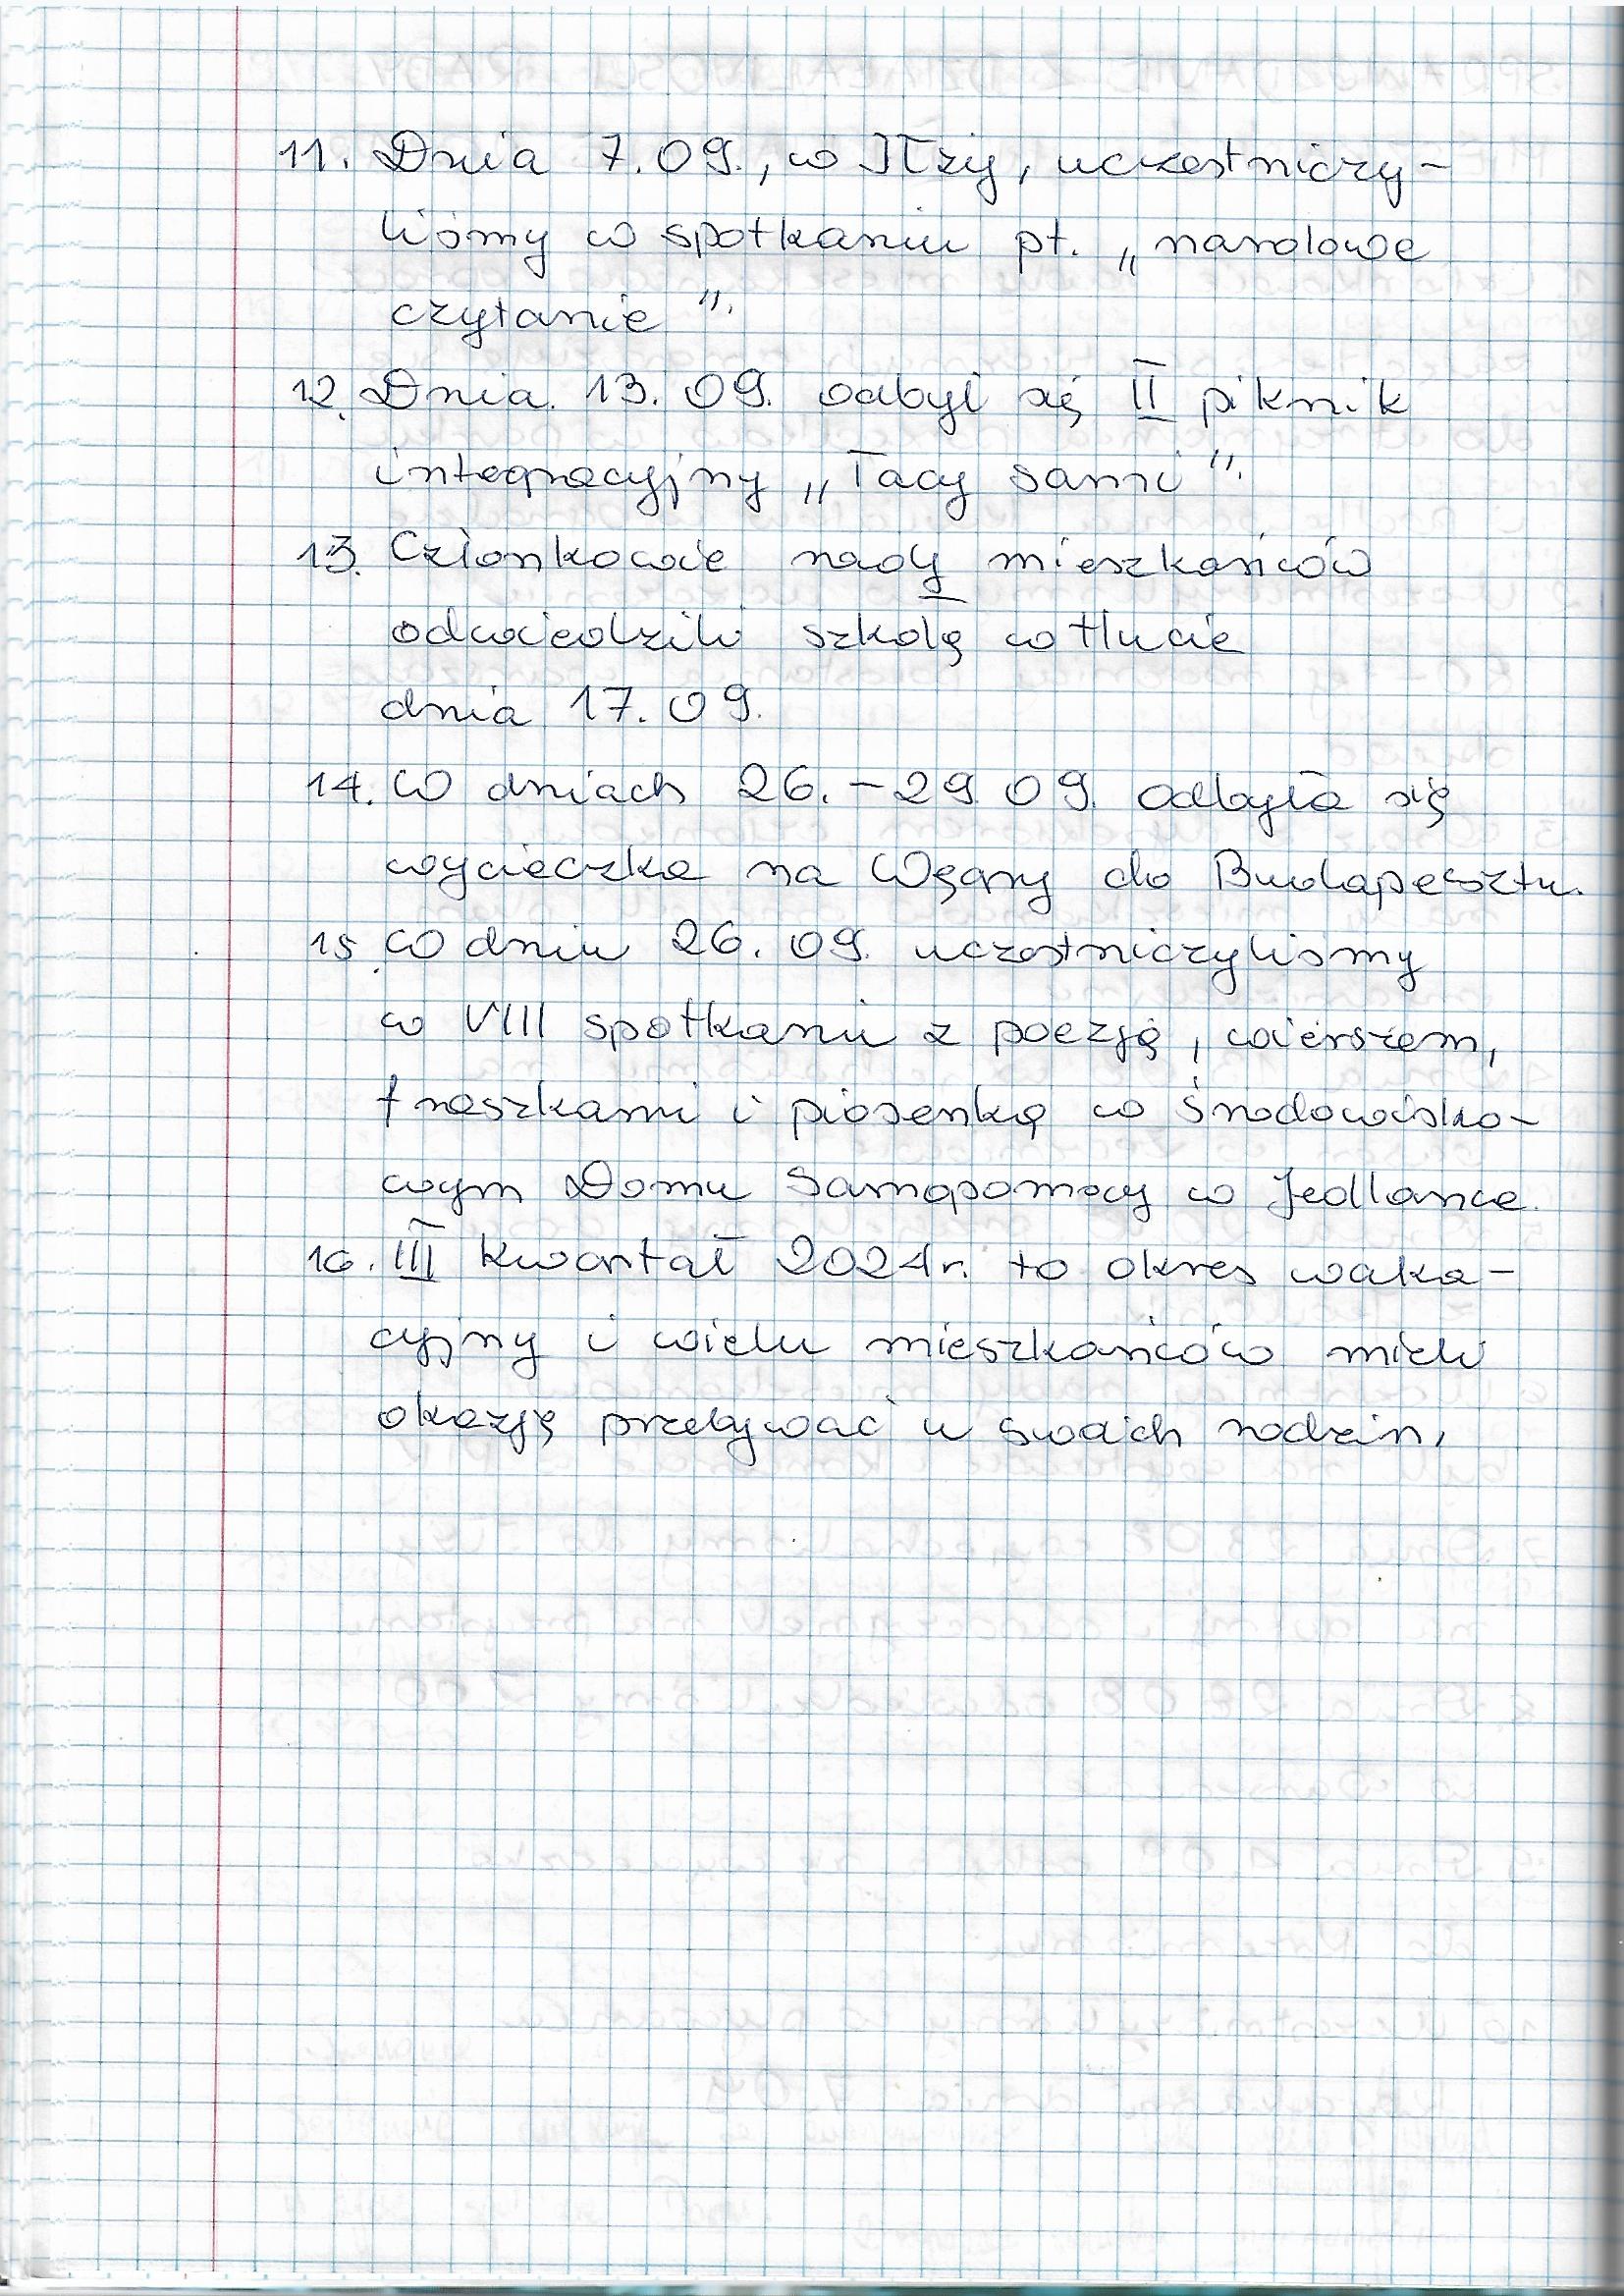 11. Dnia 7.09., w Iłży, uczestniczy-
liśmy w spotkaniu pt. „narodowe
czytanie".
12. Dnia 13.09. odbył się II piknik
integracyjny „Tacy sami".
13. Członkowie rady mieszkańców
odwiedzili szkołę w
dnia 17.09.
14. W dniach 26.-29.09. odbyła się
wycieczka na Węgry do Budapesztu.
15. W dniu 26.09. uczestniczyliśmy
w VIII spotkaniu z poezją, wierszem,
fraszkami i piosenką w Środowisko-
wym Domu Samopomocy w Jedlance.
16. III kwartał 2024r. to okres waka-
cyjny i wielu mieszkańców mieli
okazję przebywać u swoich rodzin,